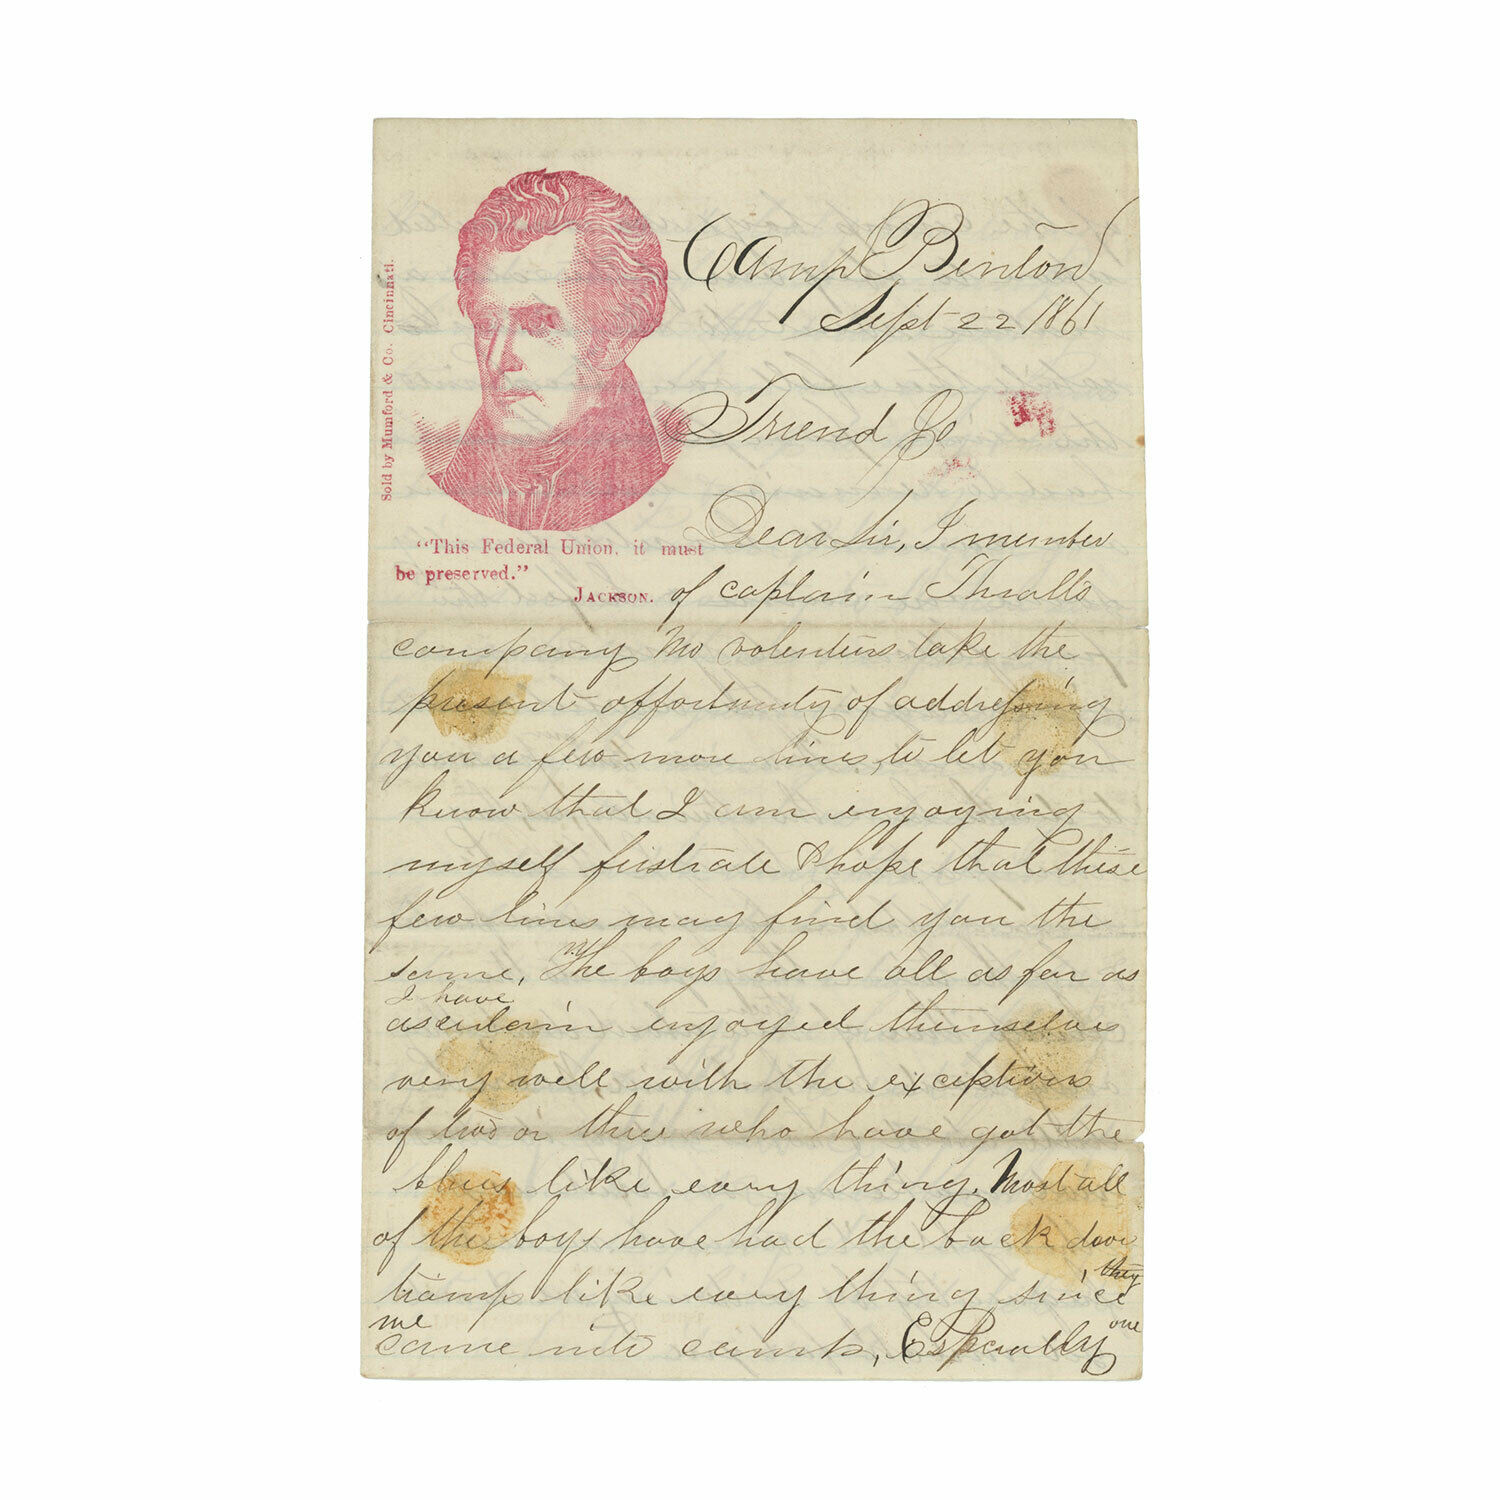 Sold by Mumford & Co. Cincinnati.
"This Federal Union, it must
be preserved."
JACKSON.
Camp Benton
Sept 22 1861
Friend Jo
Dear Sir, I member
of captain Thralls
company Mo volenteers take the
present opportunity of addressing
you a few more lines, to let you
know that I am enjoying
myself firstrate & hope that these
few lines may find you the
same. The boys have all as far as
I have
ascertain enjoyed themselves
very well with the exceptions
of two or three who have got the
blues like every thing. Most all
of the boys have had the back door
they
tramp like every thing since
we one
came into camp, Especially